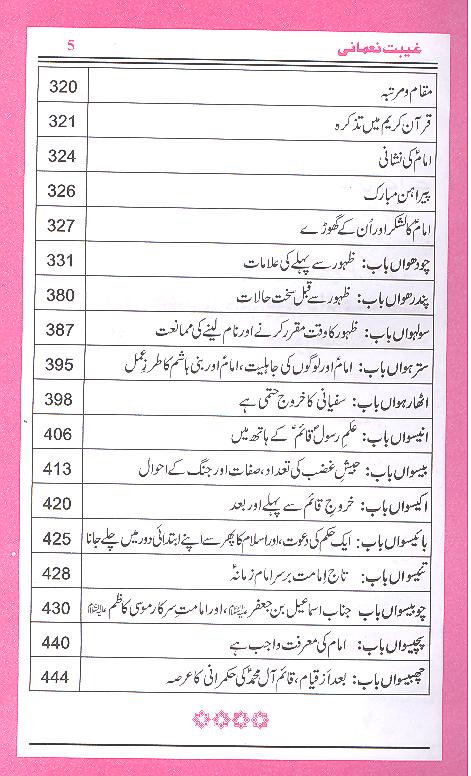 غیبت نعمانی 5
مقام و مرتبہ 320
قرآن کریم میں تذکرہ 321
امامؑ کی نشانی 324
پیراہن مبارک 326
امامؑ کا لشکر اور اُن کے گھوڑے 327
چودھواں باب: ظہور سے پہلے کی علامات 331
پندرھواں باب: ظہور سے قبل سخت حالات 380
سولہواں باب: ظہور کا وقت مقرر کرنے اور نام لینے کی ممانعت 387
سترہواں باب: امامؑ اور لوگوں کی جاہلیت، امامؑ اور بنی ہاشم کا طرزِ عمل 395
اٹھارہواں باب: سفیانی کا خروج حتمی ہے 398
انیسواں باب: علمِ رسولؐ قائمؑ کے ہاتھ میں 406
بیسواں باب: جیشِ غضب کی تعداد، صفات اور جنگ کے احوال 413
اکیسواں باب: خروجِ قائم سے پہلے اور بعد 420
بائیسواں باب: ایک حکم کی دعوت، اور اسلام کا پھر سے اپنے ابتدائی دور میں چلے جانا 425
تئیسواں باب: تاجِ امامت برسرِ امام زمانہؑ 428
چوبیسواں باب جناب اسماعیل بن جعفر علیہ السلام، اور امامتِ سرکار موسیٰ کاظم علیہ السلام 430
پچیسواں باب: امام کی معرفت واجب ہے 440
چھبیسواں باب: بعد از قیام، قائمِ آلِ محمدؐ کی حکمرانی کا عرصہ 444